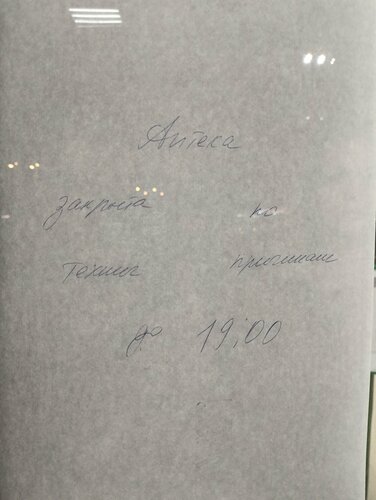 Аптека
закрыта по
технич причинам
до 19:00